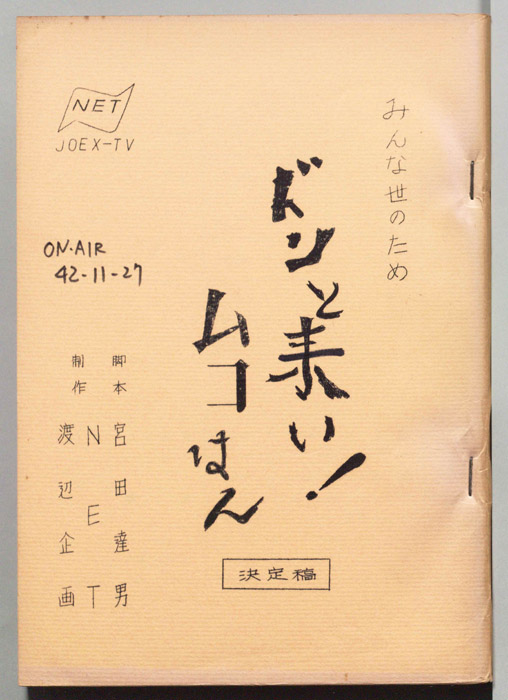 みんな世のため
ドンと来い!
ムコはん
決定稿
NET
JOEX-TV
ON・AIR
42-11-27
脚本 宮田達男
制作 NET
渡辺企画